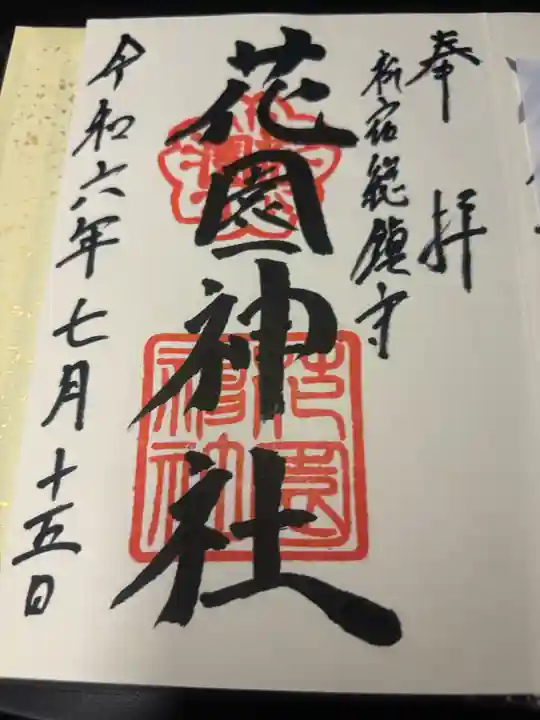 奉拝
新宿総鎮守
花園神社
花園神社
令和六年七月十五日